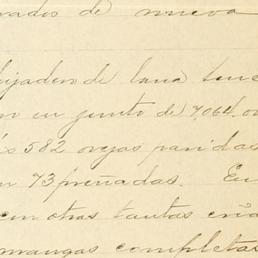 rados de nueva
ijadero de lana tene
on en junto de 7,064 ov
s 582 ovejas paridas
n 73 preñadas. En
con otras tantas cría
mangas completas